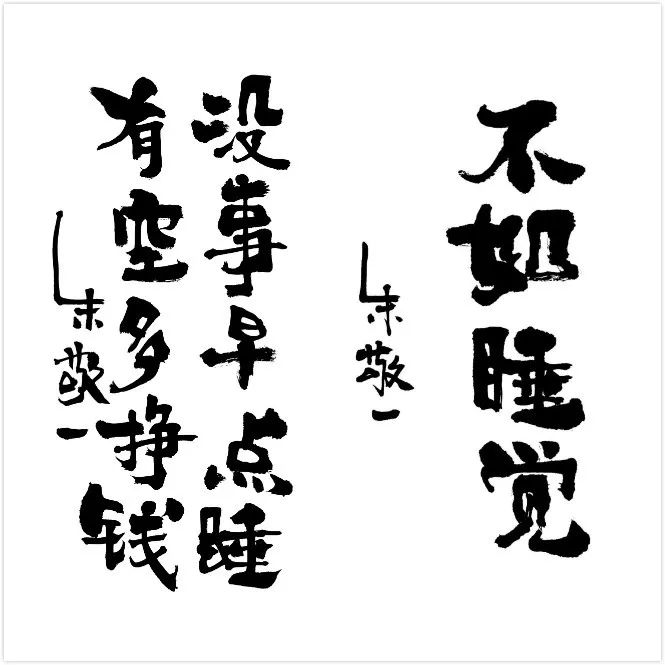 不如睡觉
朱敬一
没事早点睡
有空多挣钱
朱敬一